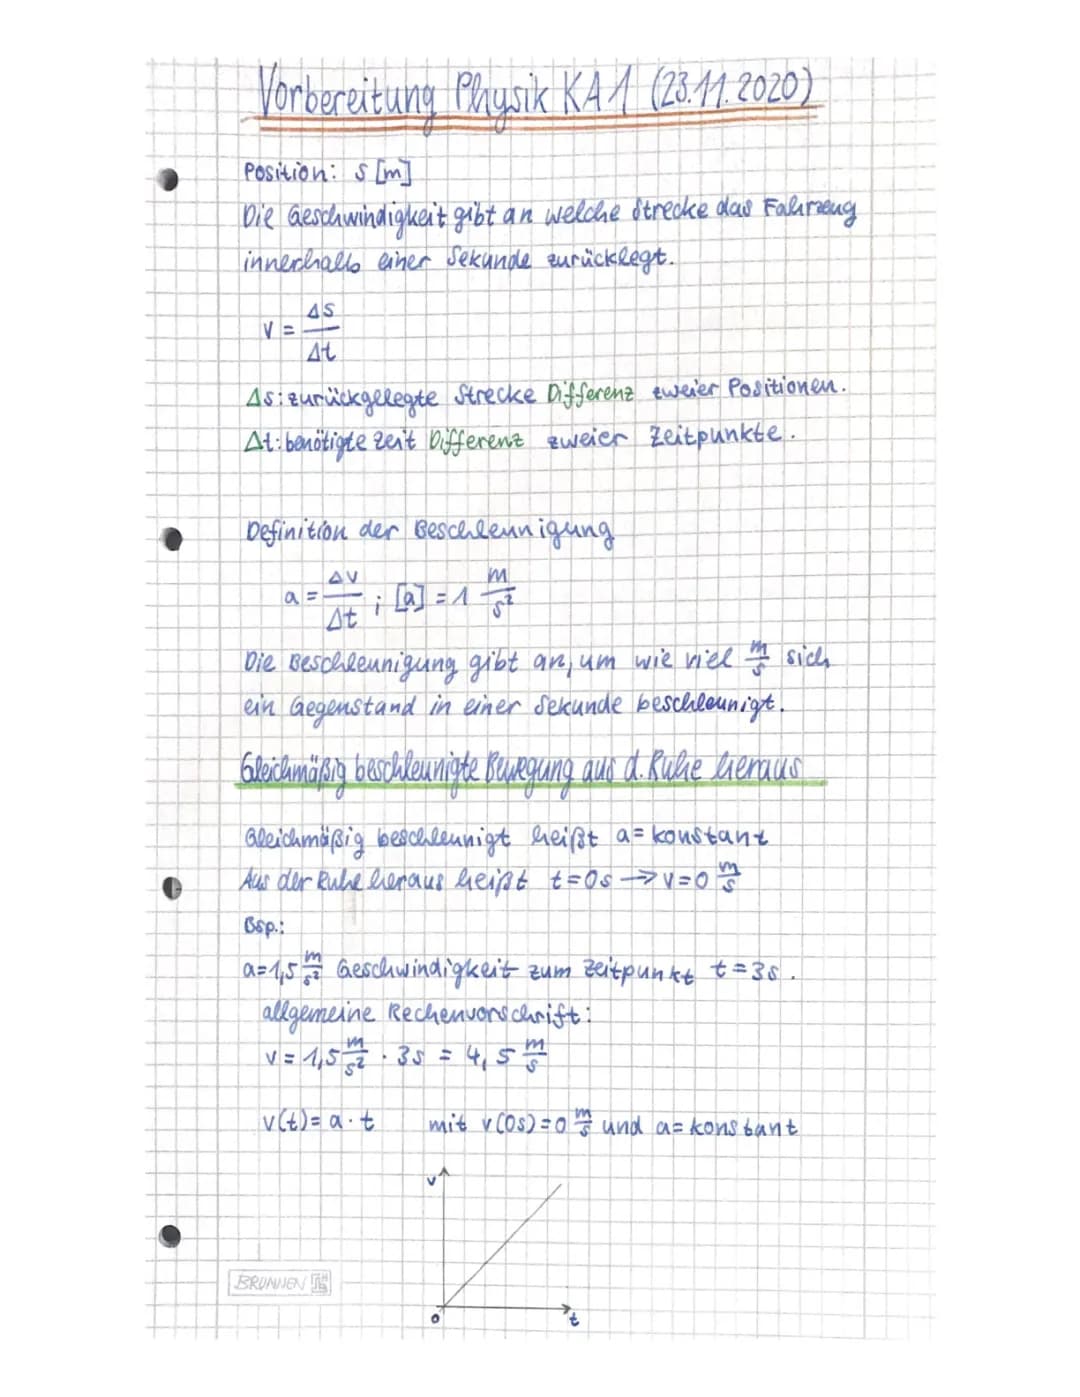 Vorbereitung Physik KA1 (23.11.2020)
Position: s [m]
Die Geschwindigkeit gibt an welche Strecke das Fahrzeug
innerhalb einer Sekunde zurücklegt.
v = Δs/Δt
Δs: zurückgelegte Strecke Differenz zweier Positionen.
Δt: benötigte Zeit Differenz zweier Zeitpunkte.
Definition der Beschleunigung
a = Δv/Δt ; [a] = 1 m/s²
Die Beschleunigung gibt an, um wie viel m/s sich
ein Gegenstand in einer Sekunde beschleunigt.
Gleichmäßig beschleunigte Bewegung aus d. Ruhe heraus
Gleichmäßig beschleunigt heißt a = konstant
Aus der Ruhe heraus heißt t=0s → v=0 m/s
Bsp.:
a=1,5 m/s² Geschwindigkeit zum Zeitpunkt t=3s.
allgemeine Rechenvorschrift:
v = 1,5 m/s² · 3s = 4,5 m/s
v(t) = a · t mit v(0s) = 0 m/s und a = konstant
v
0 t
BRUNNEN